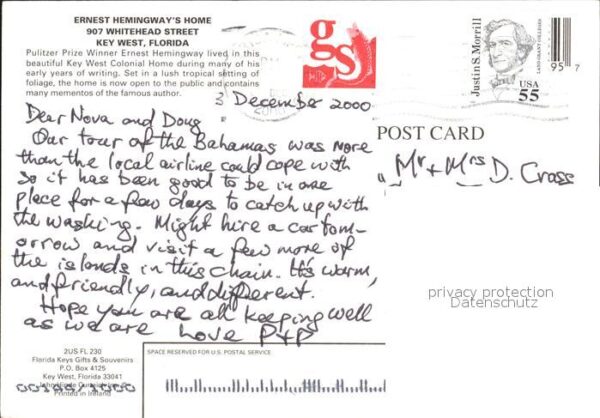 ERNEST HEMINGWAY'S HOME
907 WHITEHEAD STREET
KEY WEST, FLORIDA
Pulitzer Prize Winner Ernest Hemingway lived in this
beautiful Key West Colonial Home during many of his
early years of writing. Set in a lush tropical setting of
foliage, the home is now open to the public and contains
many mementos of the famous author.
gs
Justin S. Morrill
LAND-GRANT COLLEGES
USA
55
95 7
3 December 2000
Dear Nova and Doug
Our tour of the Bahamas was more
than the local airline could cope with
so it has been good to be in one
place for a few days to catch up with
the washing. Might hire a car tom-
orrow and visit a few more of
the islands in this chain. It's warm,
and friendly, and different.
Hope you are all keeping well
as we are Love P+P
POST CARD
Mr + Mrs D. Cross
privacy protection
Datenschutz
2US FL 230
Florida Keys Gifts & Souvenirs
P.O. Box 4125
Key West, Florida 33041
Printed in Ireland
SPACE RESERVED FOR U.S. POSTAL SERVICE